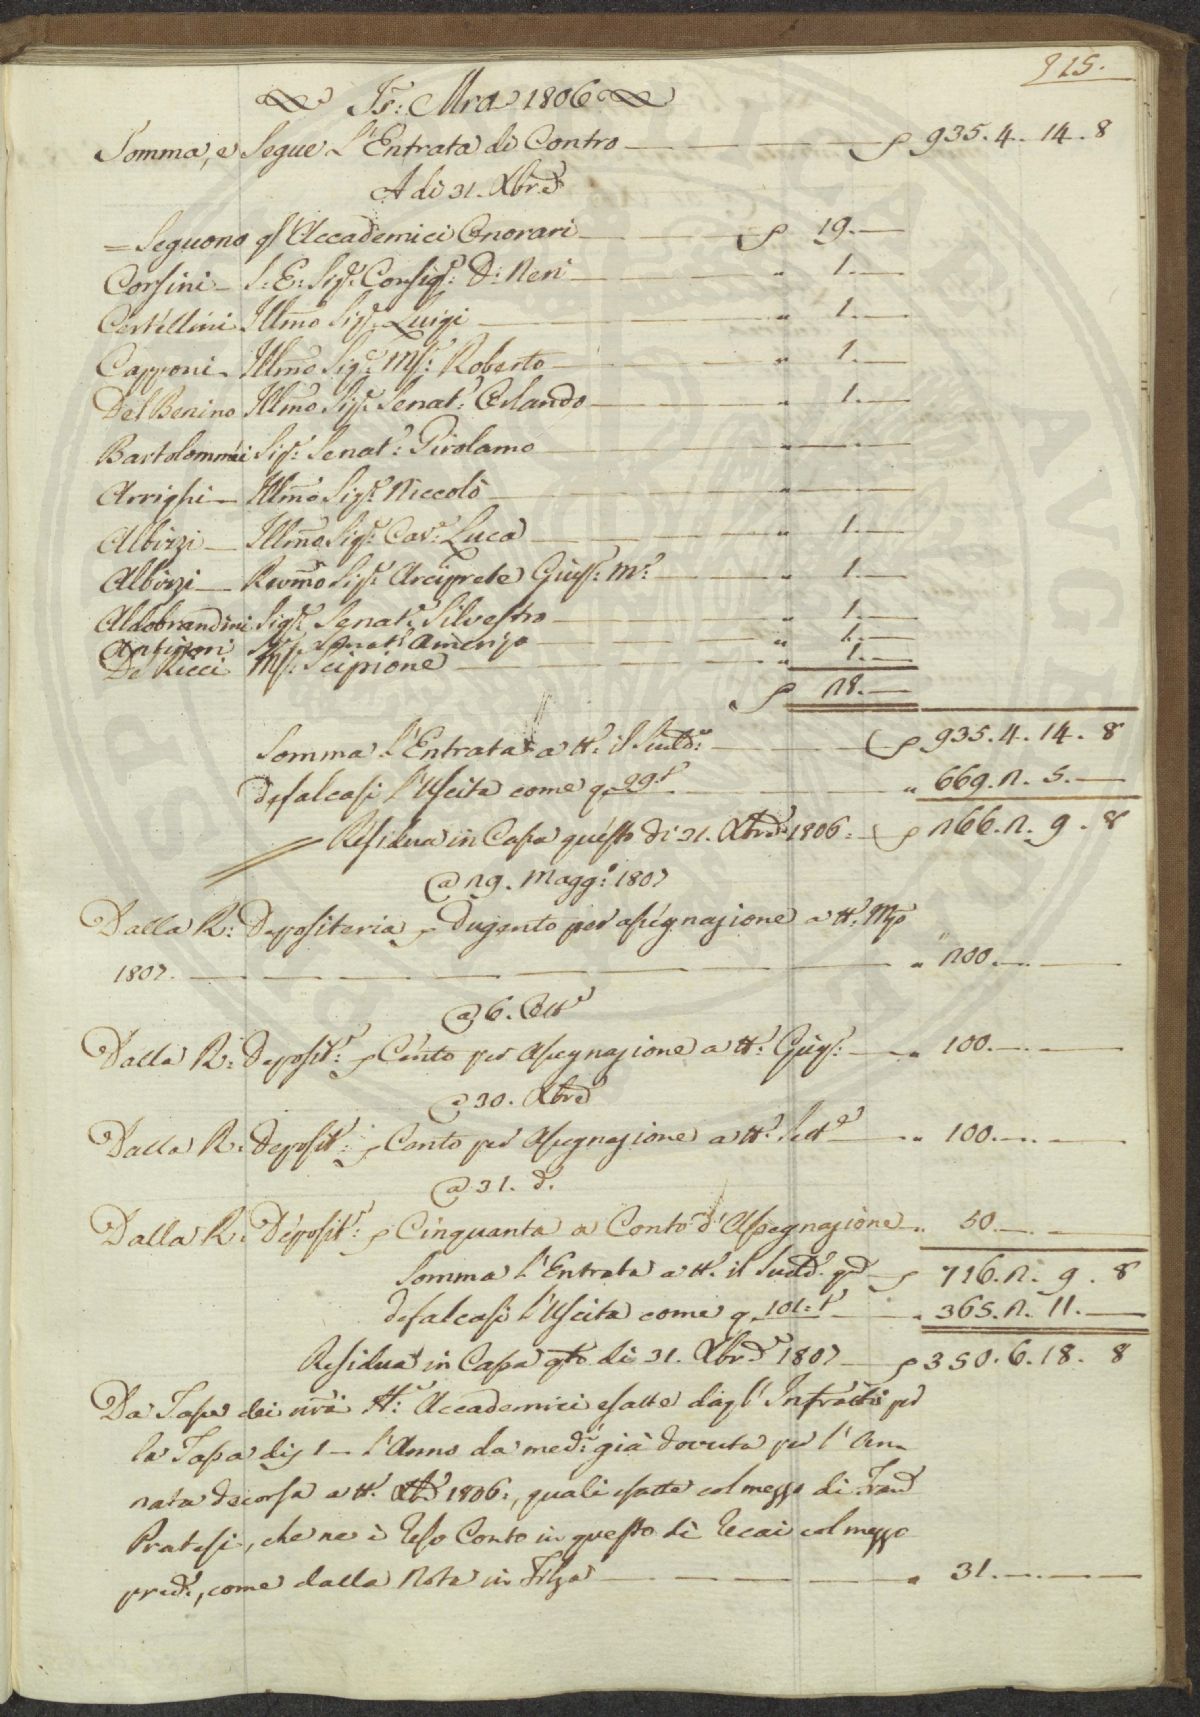 115.
Is: Mra 1806
Somma, e Segue l'Entrata di Contro 935. 4. 14. 8
A di 31. Xbre
= Seguono gl'Accademici Onorari 19.
Corsini S: E: Sigr. Consigr: D: Neri „ 1.
Illmo Sigr. Luigi „ 1.
Capponi Illmo Sigr. Mse: Roberto „ 1.
Del Benino Illmo Sigr. Senatr: Orlando „ 1.
Bartolommei Sigr: Senatr: Girolamo „
Arrighi Illmo Sigr. Niccolò „
Albizzi Illmo Sigr. Cavr: Luca „ 1.
Albizzi Revmo Sigr. Arciprete Giuse: Ma: „ 1.
Aldobrandini Sigr. Senatr. Silvestro „ 1.
Antinori Sigr. Senatr Amerigo „ 1.
De Ricci Mse: Scipione „ 1.
28.
Somma l'Entrata a tto: il Sudd: 935. 4. 14. 8
defalcasi l'Uscita come q. 99.t „ 669. 2. 5.
Residua in Cassa questo dì 31. Xbre 1806: 266. 2. 9. 8
@ 29. Magg: 1807
Dalla R: Depositeria Dugento per assegnazione a tto: Mgo
1807. „ 200.
@ 6. Ott
Dalla R: Deposit: Cento per Assegnazione a tto: Giugo: „ 100.
@ 30. Xbre
Dalla R: Deposit: Cento per Assegnazione a tto: Sett „ 100.
@ 31. d.
Dalla R: Deposit: Cinquanta a Conto d'Assegnazione „ 50.
Somma l'Entrata a tto: il Sudd: 716. 2. 9. 8
defalcasi l'Uscita come q 101: t „ 365. 2. 11.
Residua in Cassa qto di 31. Xbre 1807 350. 6. 18. 8
Da Tasse dei Accademici esatte dagl'Infratti per
la Tassa di 1 l'Anno da med: già dovuta per l'An-
nata decorsa a tto: Xbre 1806:, quali esatte col mezzo di
Pratesi, che ne è Reso Conto in questo dì col mezzo
pred:, come dalla Nota in Filza „ 31.